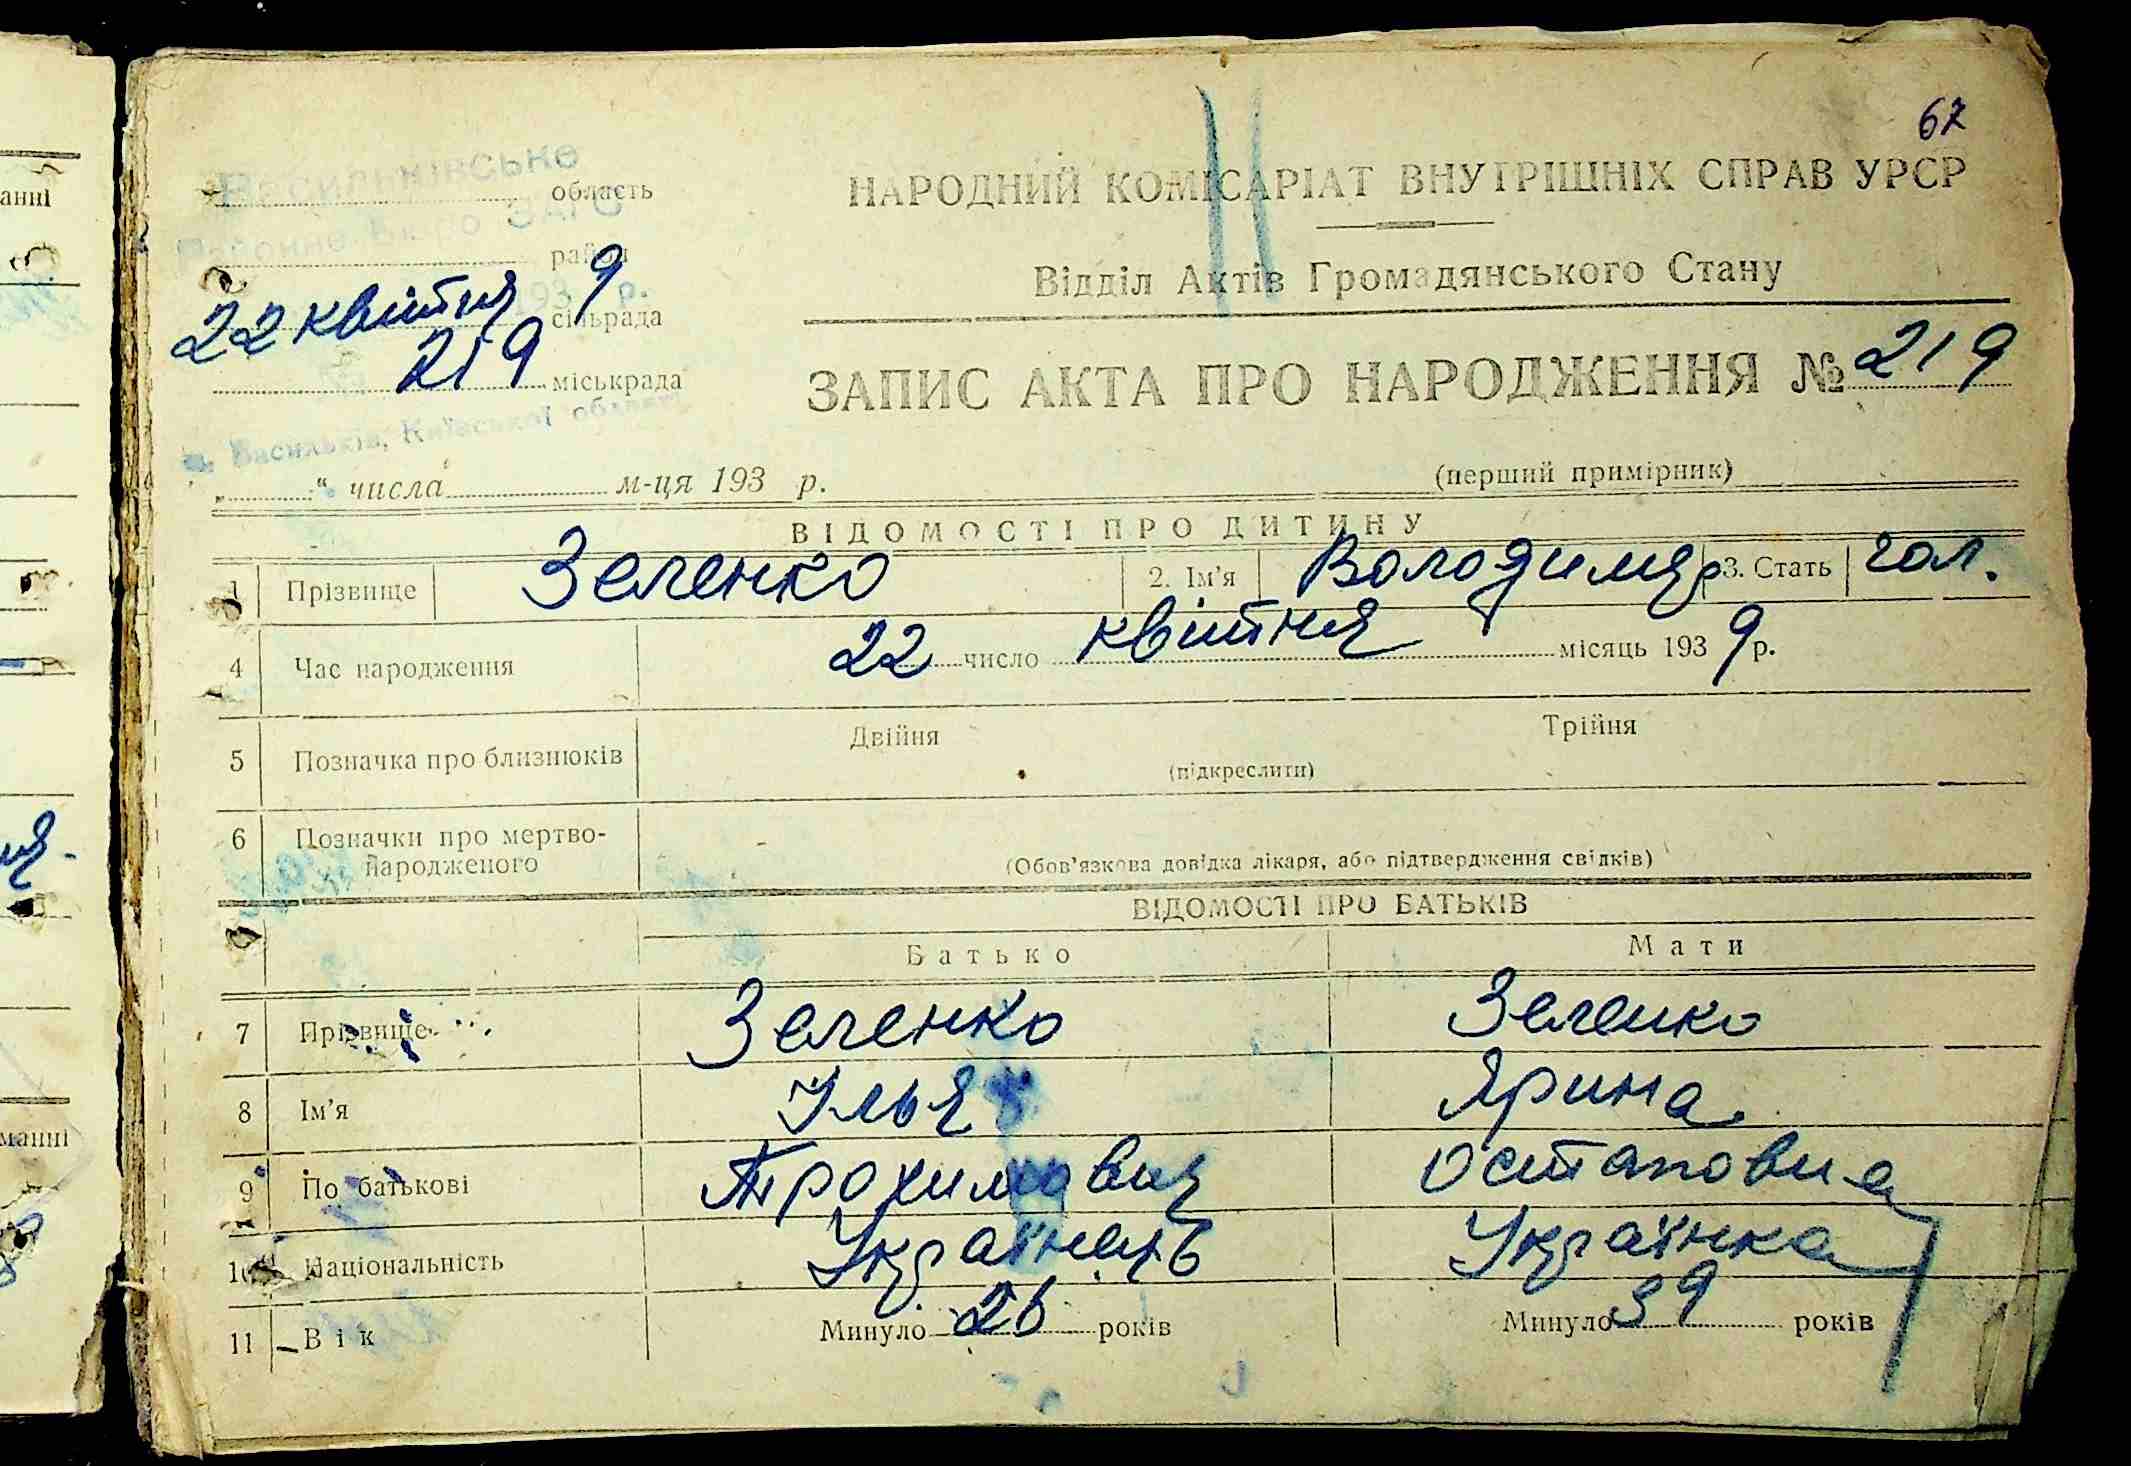 67
Васильківське
Районне Бюро ЗАГС
область
район
22 квітня 1939 р.
сільрада
219 міськрада
м. Васильків, Київської області
„ “ числа м-ця 193 р.
НАРОДНИЙ КОМІСАРІАТ ВНУТРІШНІХ СПРАВ УРСР
Відділ Актів Громадянського Стану
ЗАПИС АКТА ПРО НАРОДЖЕННЯ № 219
(перший примірник)
ВІДОМОСТІ ПРО ДИТИНУ
1 Прізвище Зеленко 2. Ім'я Володимир 3. Стать чол.
4 Час народження 22 число квітня місяць 1939 р.
5 Позначка про близнюків Двійня Трійня
(підкреслити)
6 Позначки про мертво-
народженого
(Обов'язкова довідка лікаря, або підтвердження свідків)
ВІДОМОСТІ ПРО БАТЬКІВ
Батько Мати
7 Прізвище Зеленко Зеленко
8 Ім'я Ілья Ярина
9 По батькові Трохимович Остаповна
10 Національність Українець Українка
11 Вік Минуло 26 років Минуло 39 років
анні
манні